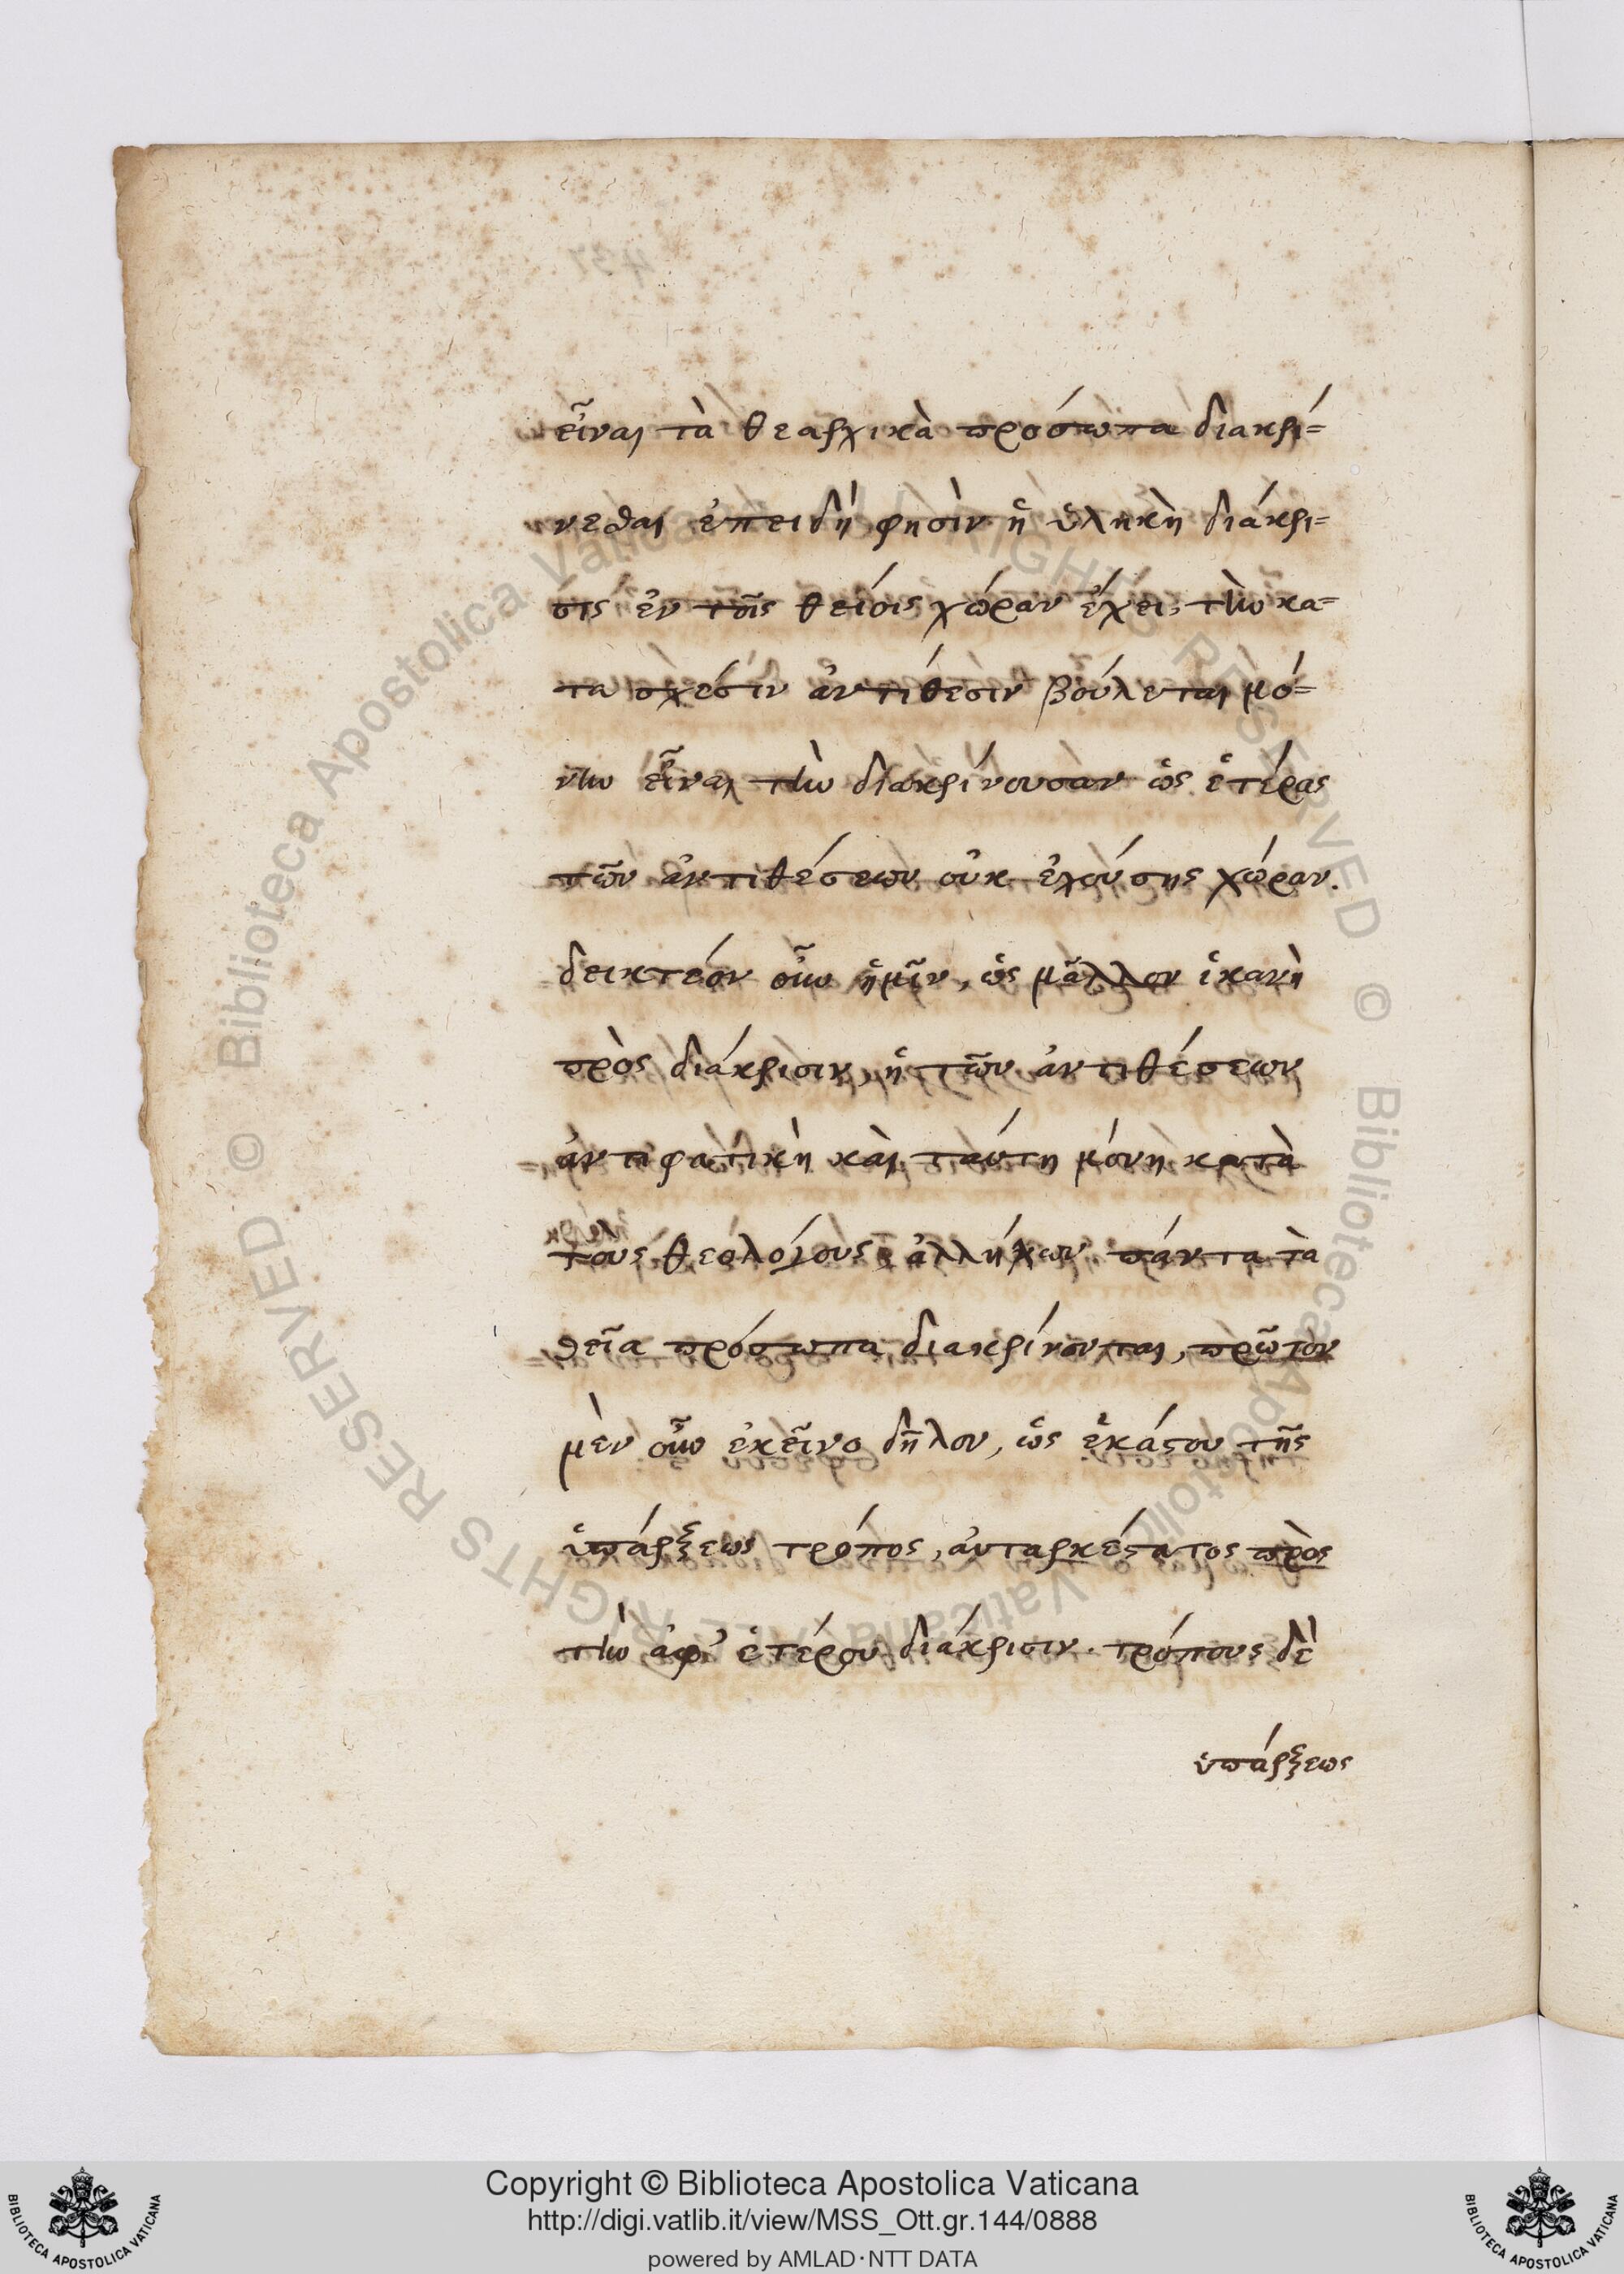 εἶναι τὰ θεαρχικὰ πρόσωπα διακρί=
νεσθαι ἐπειδὴ φησὶν ἡ ὑλικὴ διάκρι=
σις ἐν τοῖς θείοις χώραν ἔχει, τὴν κα=
τα σχέσιν ἀντίθεσιν βούλεται μό=
νην εἶναι τὴν διακρίνουσαν ὡς ἑτέρας
τῶν ἀντιθέσεων οὐκ ἐχούσης χώραν.
δεικτέον οὖν ἡμῖν, ὡς μᾶλλον ἱκανὴ
πρὸς διάκρισιν, ἡ τῶν ἀντιθέσεων
ἀντιφατικὴ καὶ ταύτη μόνη κατὰ
τοὺς θεολόγους ἀλλήλων πάντα τὰ
θεῖα πρόσωπα διακρίνονται, πρῶτον
μὲν οὖν ἐκεῖνο δῆλον, ὡς ἑκάστου τῆς
ὑπάρξεως τρόπος, ἀυταρκέστατος πρὸς
τὴν ἀφ' ἑτέρου διάκρισιν. τρόπους δὲ
ὑπάρξεως
Copyright © Biblioteca Apostolica Vaticana
http://digi.vatlib.it/view/MSS_Ott.gr.144/0888
powered by AMLAD·NTT DATA
BIBLIOTECA APOSTOLICA VATICANA
BIBLIOTECA APOSTOLICA VATICANA
© Biblioteca Apostolica Vaticana ALL RIGHTS RESERVED © Biblioteca Apostolica Vaticana ALL RIGHTS RESERVED